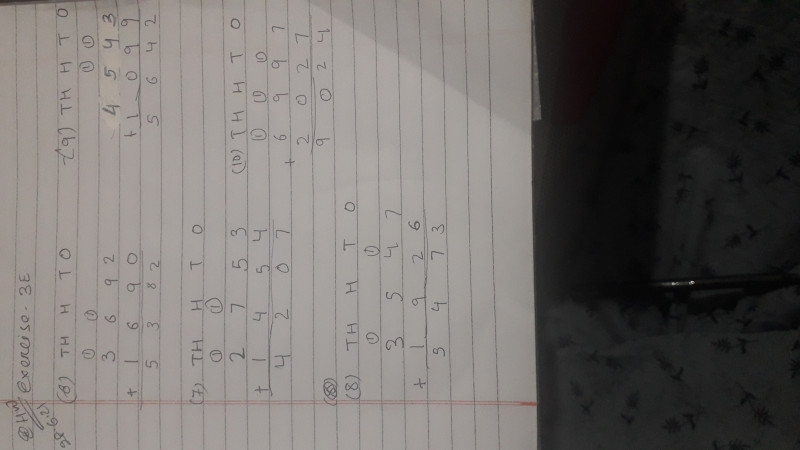 @HW exercise. 3E
28.6.21
(6) TH H T O
① ①
3 6 9 2
+ 1 6 9 0
5 3 8 2
(7) TH H T O
① ①
2 7 5 3
+ 1 4 5 4
4 2 0 7
(8) TH H T O
① ①
3 5 4 7
+ 1 9 2 6
5 4 7 3
(9) TH H T O
① ①
4 5 4 3
+ 1 0 9 9
5 6 4 2
(10) TH H T O
① ① ①
6 9 9 7
+ 2 0 2 7
9 0 2 4